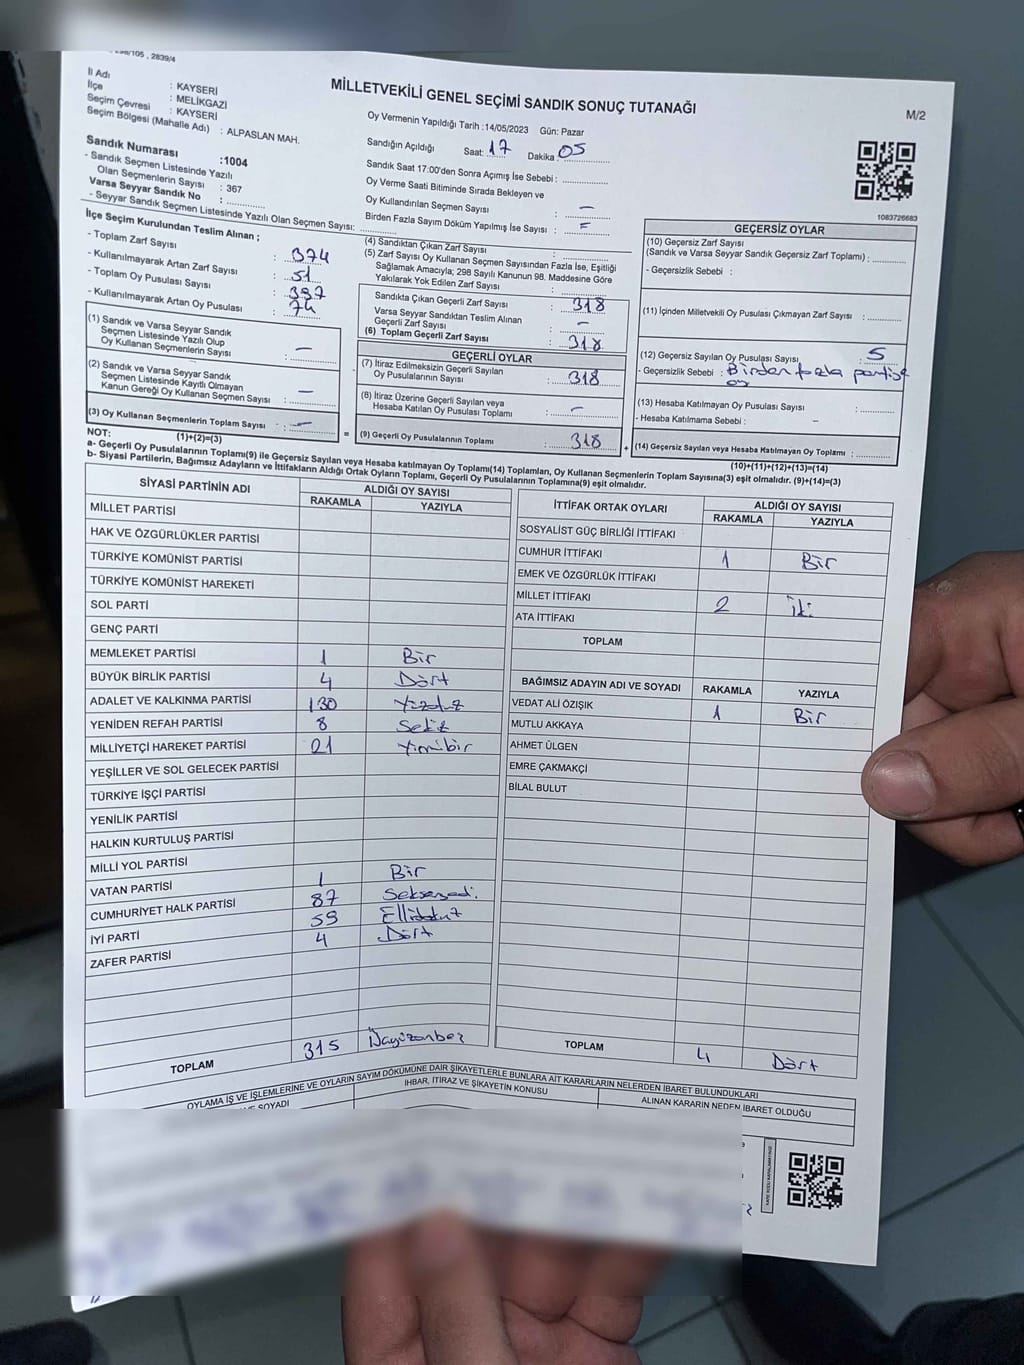 298/105 , 2839/4
MİLLETVEKİLİ GENEL SEÇİMİ SANDIK SONUÇ TUTANAĞI
M/2
İl Adı : KAYSERİ
İlçe : MELİKGAZİ
Seçim Çevresi : KAYSERİ
Seçim Bölgesi (Mahalle Adı) : ALPASLAN MAH.
Sandık Numarası :1004
- Sandık Seçmen Listesinde Yazılı
Olan Seçmenlerin Sayısı : 367
Varsa Seyyar Sandık No :
- Seyyar Sandık Seçmen Listesinde Yazılı Olan Seçmen Sayısı:
Oy Vermenin Yapıldığı Tarih :14/05/2023 Gün: Pazar
Sandığın Açıldığı Saat: 17 Dakika 05
Sandık Saat 17:00'den Sonra Açılmış İse Sebebi :
Oy Verme Saati Bitiminde Sırada Bekleyen ve
Oy Kullandırılan Seçmen Sayısı : –
Birden Fazla Sayım Döküm Yapılmış İse Sayısı : =
1083726683
İlçe Seçim Kurulundan Teslim Alınan ;
- Toplam Zarf Sayısı : 374
- Kullanılmayarak Artan Zarf Sayısı : 51
- Toplam Oy Pusulası Sayısı : 397
- Kullanılmayarak Artan Oy Pusulası : 74
(1) Sandık ve Varsa Seyyar Sandık
Seçmen Listesinde Yazılı Olup
Oy Kullanan Seçmenlerin Sayısı : –
(2) Sandık ve Varsa Seyyar Sandık
Seçmen Listesinde Kayıtlı Olmayan
Kanun Gereği Oy Kullanan Seçmen Sayısı : –
(3) Oy Kullanan Seçmenlerin Toplam Sayısı : –
(1)+(2)=(3)
(4) Sandıktan Çıkan Zarf Sayısı :
(5) Zarf Sayısı Oy Kullanan Seçmen Sayısından Fazla İse, Eşitliği
Sağlamak Amacıyla; 298 Sayılı Kanunun 98. Maddesine Göre
Yakılarak Yok Edilen Zarf Sayısı :
Sandıkta Çıkan Geçerli Zarf Sayısı : 318
Varsa Seyyar Sandıktan Teslim Alınan
Geçerli Zarf Sayısı : –
(6) Toplam Geçerli Zarf Sayısı : 318
GEÇERLİ OYLAR
(7) İtiraz Edilmeksizin Geçerli Sayılan
Oy Pusulalarının Sayısı : 318
(8) İtiraz Üzerine Geçerli Sayılan veya
Hesaba Katılan Oy Pusulası Toplamı : –
= (9) Geçerli Oy Pusulalarının Toplamı : 318 +
GEÇERSİZ OYLAR
(10) Geçersiz Zarf Sayısı
(Sandık ve Varsa Seyyar Sandık Geçersiz Zarf Toplamı) :
- Geçersizlik Sebebi :
(11) İçinden Milletvekili Oy Pusulası Çıkmayan Zarf Sayısı :
(12) Geçersiz Sayılan Oy Pusulası Sayısı : 5
- Geçersizlik Sebebi : Birden fazla partiye
oy
(13) Hesaba Katılmayan Oy Pusulası Sayısı :
- Hesaba Katılmama Sebebi : –
(14) Geçersiz Sayılan veya Hesaba Katılmayan Oy Toplamı :
(10)+(11)+(12)+(13)=(14)
NOT:
a- Geçerli Oy Pusulalarının Toplamı(9) ile Geçersiz Sayılan veya Hesaba katılmayan Oy Toplamı(14) Toplamları, Oy Kullanan Seçmenlerin Toplam Sayısına(3) eşit olmalıdır. (9)+(14)=(3)
b- Siyasi Partilerin, Bağımsız Adayların ve İttifakların Aldığı Ortak Oyların Toplamı, Geçerli Oy Pusulalarının Toplamına(9) eşit olmalıdır.
SİYASİ PARTİNİN ADI
ALDIĞI OY SAYISI
RAKAMLA YAZIYLA
MİLLET PARTİSİ
HAK VE ÖZGÜRLÜKLER PARTİSİ
TÜRKİYE KOMÜNİST PARTİSİ
TÜRKİYE KOMÜNİST HAREKETİ
SOL PARTİ
GENÇ PARTİ
MEMLEKET PARTİSİ 1 Bir
BÜYÜK BİRLİK PARTİSİ 4 Dört
ADALET VE KALKINMA PARTİSİ 130 Yüzotuz
YENİDEN REFAH PARTİSİ 8 Sekiz
MİLLİYETÇİ HAREKET PARTİSİ 21 Yirmibir
YEŞİLLER VE SOL GELECEK PARTİSİ
TÜRKİYE İŞÇİ PARTİSİ
YENİLİK PARTİSİ
HALKIN KURTULUŞ PARTİSİ
MİLLİ YOL PARTİSİ
VATAN PARTİSİ 1 Bir
CUMHURİYET HALK PARTİSİ 87 Seksenyedi.
İYİ PARTİ 59 Ellidokuz
ZAFER PARTİSİ 4 Dört
TOPLAM 315 Üçyüzonbeş
İTTİFAK ORTAK OYLARI
ALDIĞI OY SAYISI
RAKAMLA YAZIYLA
SOSYALİST GÜÇ BİRLİĞİ İTTİFAKI
CUMHUR İTTİFAKI 1 Bir
EMEK VE ÖZGÜRLÜK İTTİFAKI
MİLLET İTTİFAKI 2 İki
ATA İTTİFAKI
TOPLAM
BAĞIMSIZ ADAYIN ADI VE SOYADI RAKAMLA YAZIYLA
VEDAT ALİ ÖZIŞIK 1 Bir
MUTLU AKKAYA
AHMET ÜLGEN
EMRE ÇAKMAKÇİ
BİLAL BULUT
TOPLAM 4 Dört
OYLAMA İŞ VE İŞLEMLERİNE VE OYLARIN SAYIM DÖKÜMÜNE DAİR ŞİKAYETLERLE BUNLARA AİT KARARLARIN NELERDEN İBARET BULUNDUKLARI
SOYADI
İHBAR, İTİRAZ VE ŞİKAYETİN KONUSU
ALINAN KARARIN NEDEN İBARET OLDUĞU